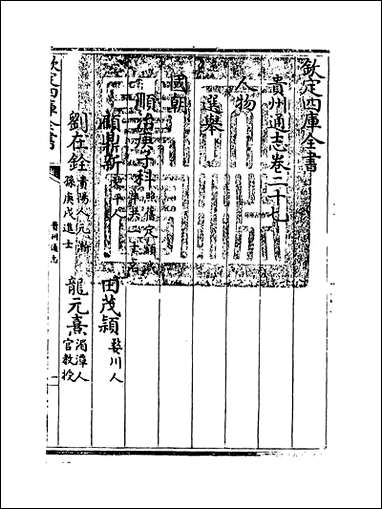 欽定四庫全書
貴州通志卷二十七
人物
選舉
國朝
順治庚子科
顧鼎新
田茂穎 婺川人
劉在銓 貴陽人元漸孫庚戌進士
龍元熹 湄潭人官教授
欽定四庫全書
貴州通志
一